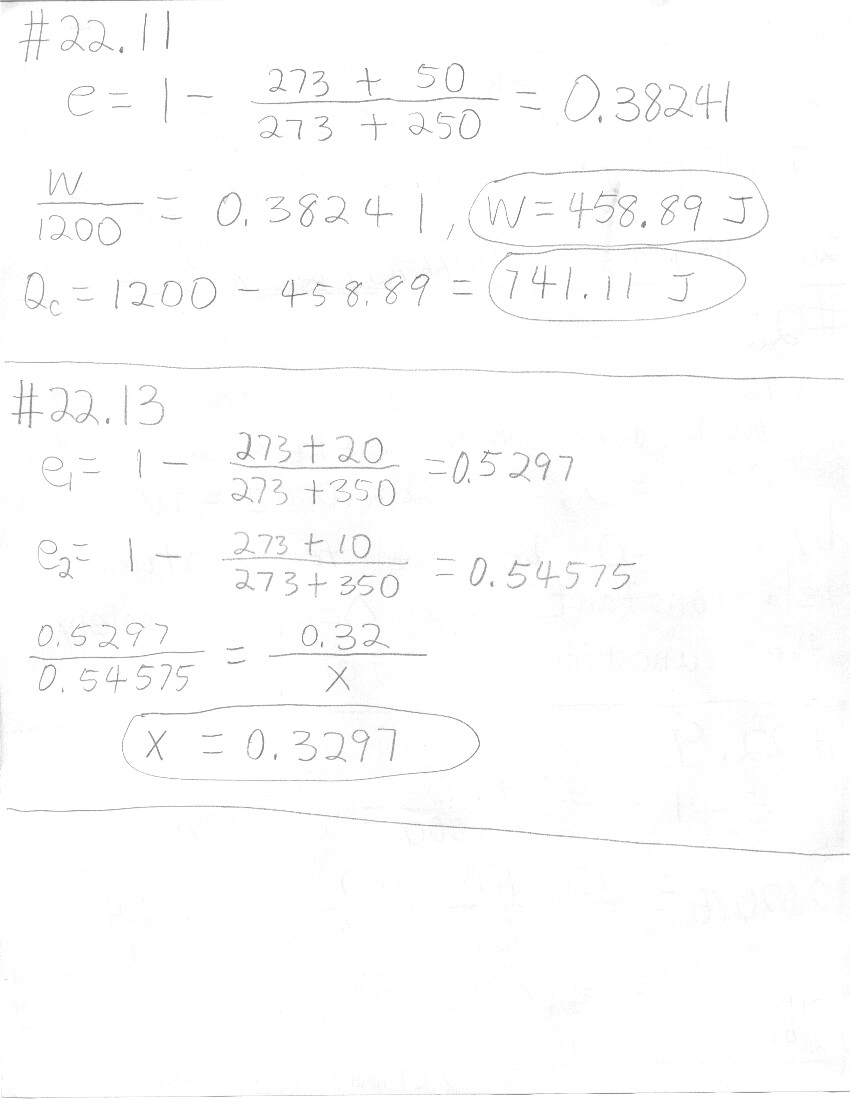 #22.11
e = 1 - (273 + 50)/(273 + 250) = 0.38241
W/1200 = 0.38241, W = 458.89 J
Qc = 1200 - 458.89 = 741.11 J
#22.13
e1 = 1 - (273 + 20)/(273 + 350) = 0.5297
e2 = 1 - (273 + 10)/(273 + 350) = 0.54575
0.5297/0.54575 = 0.32/X
X = 0.3297